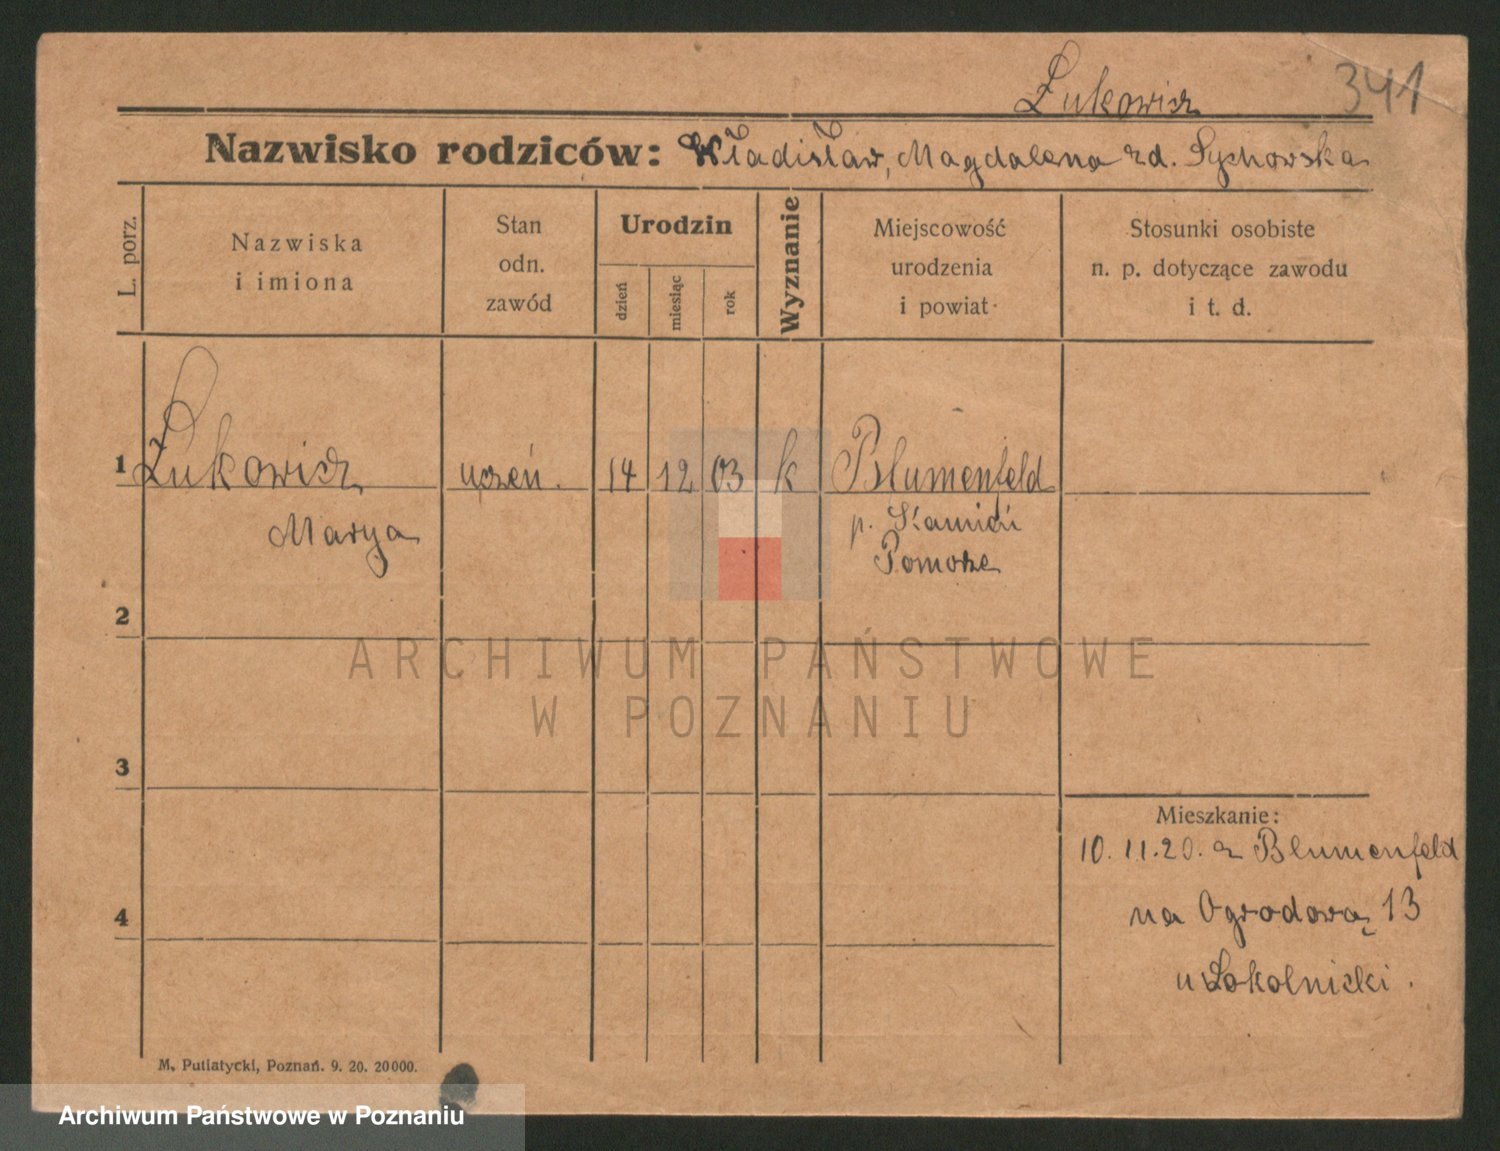 Łukowicz 341
Nazwisko rodziców: Władisław, Magdalena zd. Sychowska
L. porz.
Nazwiska
i imiona
Stan
odn.
zawód
Urodzin
dzień
miesiąc
rok
Wyznanie
Miejscowość
urodzenia
i powiat
Stosunki osobiste
n. p. dotyczące zawodu
i t. d.
1 Łukowicz uczeń. 14 12 03 k Blumenfeld
Marya
p.
Pomorze
2
ARCHIWUM PAŃSTWOWE
W POZNANIU
3
Mieszkanie:
10. 11. 20. z Blumenfeld
4
na Ogrodową 13
u Sokolnicki.
M. Putiatycki, Poznań. 9. 20. 20000.
Archiwum Państwowe w Poznaniu